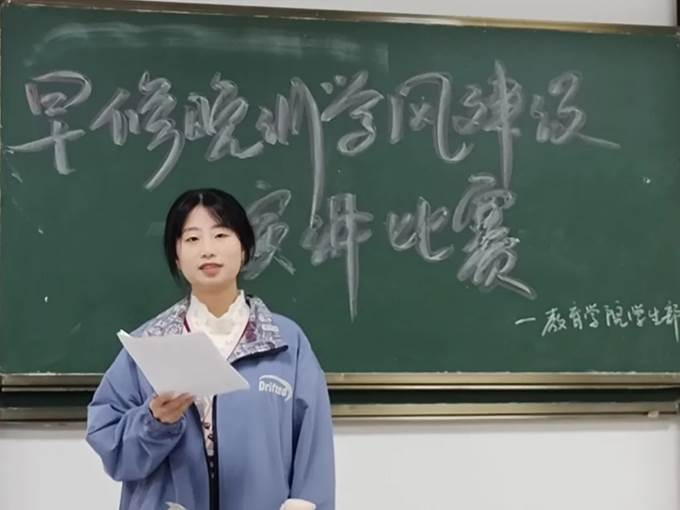 早修晚训学风建设
演讲比赛
一教育学院学生部
Drifted